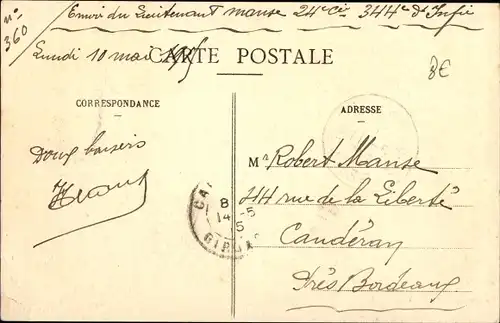 n°
360
Envoi du Lieutenant Manse 24e Cie 344e d'Infie
Lundi 10 mai
CARTE POSTALE
3€
CORRESPONDANCE
ADRESSE
Doux baisers
Mr Robert Manse
244 rue de la Liberté
Caudéran
Près Bordeaux
CA
8
14 -5
5
GIRONDE